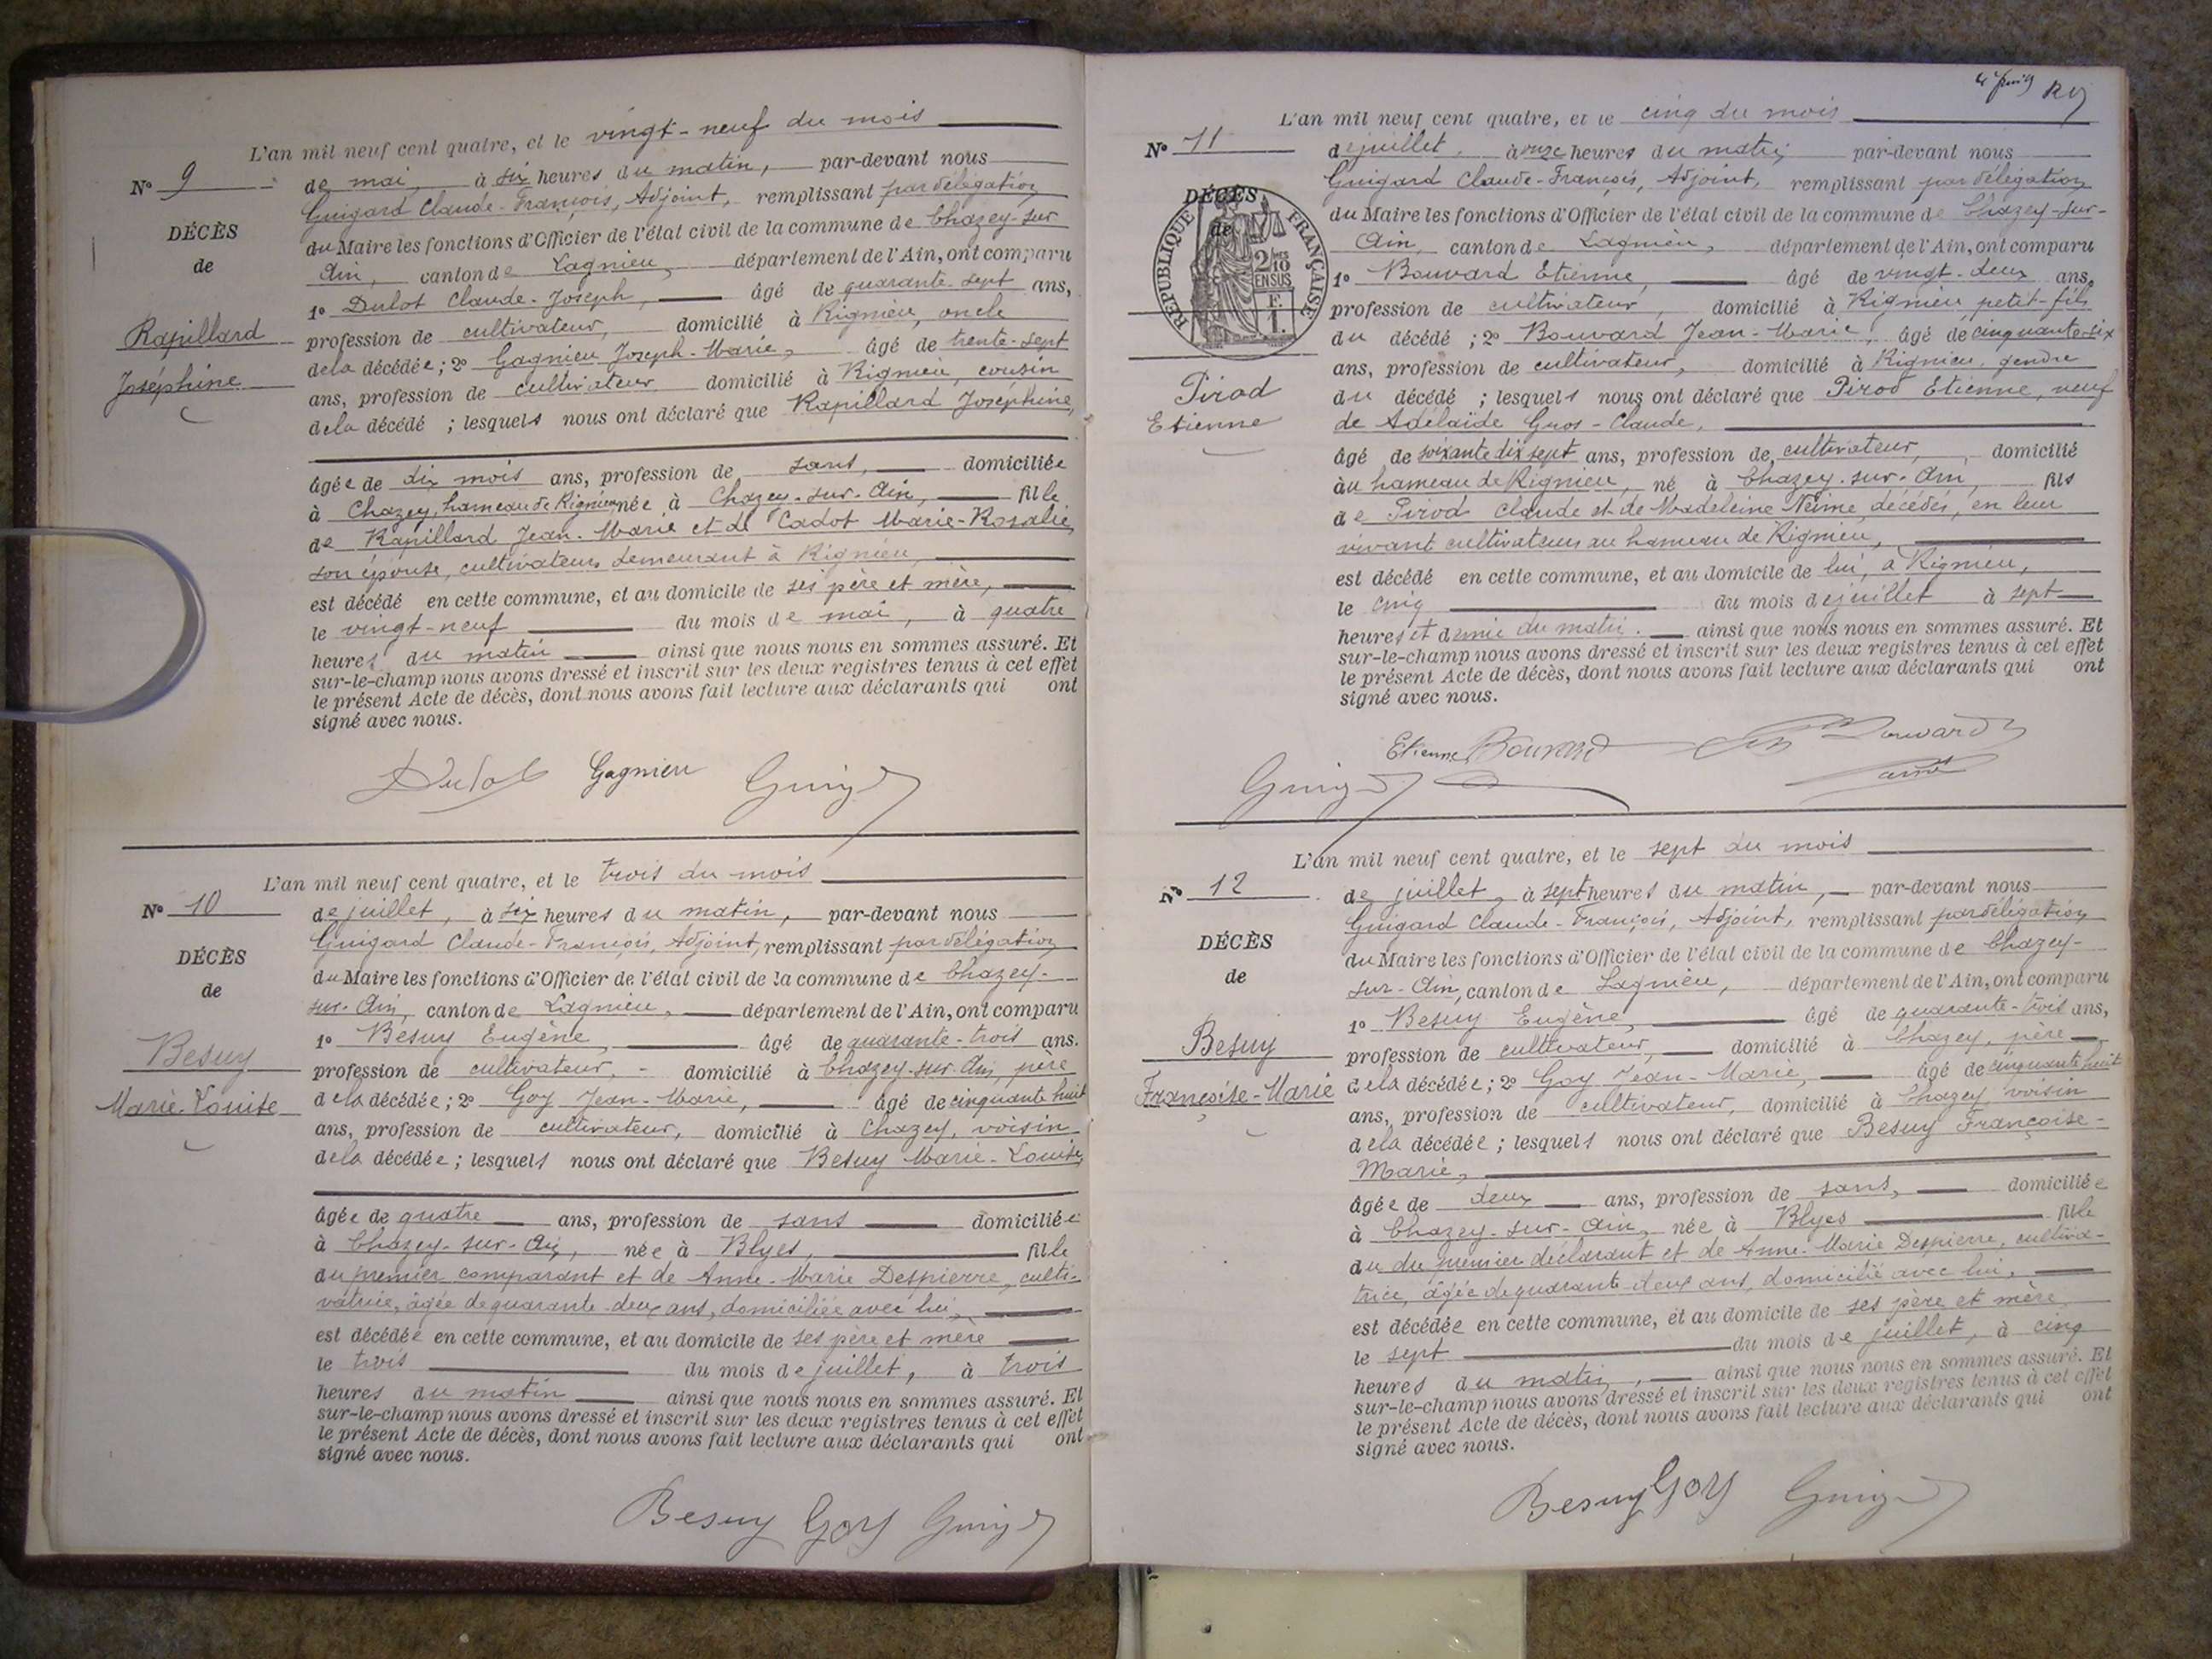 L'an mil neuf cent quatre, et le vingt-neuf du mois
N° 9
de mai, à six heures du matin, par-devant nous
Guigard Claude-François, Adjoint, remplissant par délégation
DÉCÈS
du Maire les fonctions d'Officier de l'état civil de la commune de Chazey-sur
de
Ain, canton de Lagnieu, département de l'Ain, ont comparu
1° Dulot Claude-Joseph, âgé de quarante-sept ans,
Rapillard
profession de cultivateur, domicilié à Rignieu, oncle
de la décédée; 2° Gagnieu Joseph-Marie, âgé de trente-sept
Joséphine
ans, profession de cultivateur domicilié à Rignieu, cousin
de la décédée ; lesquels nous ont déclaré que Rapillard Joséphine,
âgée de dix mois ans, profession de sans, domiciliée
à Chazey, hameau de Rignieu née à Chazey-sur-Ain, fille
de Rapillard Jean-Marie et de Cadot Marie-Rosalie,
son épouse, cultivateurs demeurant à Rignieu,
est décédé en cette commune, et au domicile de ses père et mère,
le vingt-neuf du mois de mai, à quatre
heures du matin ainsi que nous nous en sommes assuré. Et
sur-le-champ nous avons dressé et inscrit sur les deux registres tenus à cet effet
le présent Acte de décès, dont nous avons fait lecture aux déclarants qui ont
signé avec nous.
Dulot Gagnieu Guigard
L'an mil neuf cent quatre, et le trois du mois
N° 10
de juillet, à six heures du matin, par-devant nous
Guigard Claude-François, Adjoint, remplissant par délégation
DÉCÈS
du Maire les fonctions d'Officier de l'état civil de la commune de Chazey-
de
sur-Ain, canton de Lagnieu, département de l'Ain, ont comparu
1° Besuy Eugène, âgé de quarante-trois ans.
Besuy
profession de cultivateur, domicilié à Chazey-sur-Ain, père
Marie-Louise
de la décédée; 2° Goy Jean-Marie, âgé de cinquante huit
ans, profession de cultivateur, domicilié à Chazey, voisin
de la décédée; lesquels nous ont déclaré que Besuy Marie-Louise,
âgée de quatre ans, profession de sans domiciliée
à Chazey-sur-Ain, née à Blyes, fille
du premier comparant et de Anne-Marie Despierre, culti-
vatrice, âgée de quarante-deux ans, domiciliée avec lui,
est décédée en cette commune, et au domicile de ses père et mère
le trois du mois de juillet, à trois
heures du matin ainsi que nous nous en sommes assuré. Et
sur-le-champ nous avons dressé et inscrit sur les deux registres tenus à cet effet
le présent Acte de décès, dont nous avons fait lecture aux déclarants qui ont
signé avec nous.
Besuy Goy Guigard
L'an mil neuf cent quatre, et le cinq du mois
N° 11
de juillet, à onze heures du matin par-devant nous
Guigard Claude-François, Adjoint, remplissant par délégation
DÉCÈS
de
RÉPUBLIQUE FRANÇAISE
2/10 EN SUS
F. 1.
du Maire les fonctions d'Officier de l'état civil de la commune de Chazey-sur-
Ain, canton de Lagnieu, département de l'Ain, ont comparu
1° Bouvard Etienne, âgé de vingt-deux ans,
profession de cultivateur, domicilié à Rignieu petit-fils
du décédé ; 2° Bouvard Jean-Marie, âgé de cinquante-six
ans, profession de cultivateur, domicilié à Rignieu, gendre
Pirod
du décédé ; lesquels nous ont déclaré que Pirod Etienne, veuf
Etienne
de Adélaïde Gros-Claude,
âgé de soixante dix sept ans, profession de cultivateur, domicilié
au hameau de Rignieu, né à Chazey-sur-Ain, fils
de Pirod Claude et de Madeleine décédés, en leur
vivant cultivateurs au hameau de Rignieu,
est décédé en cette commune, et au domicile de lui, à Rignieu,
le cinq du mois de juillet à sept
heures et demie du matin. ainsi que nous nous en sommes assuré. Et
sur-le-champ nous avons dressé et inscrit sur les deux registres tenus à cet effet
le présent Acte de décès, dont nous avons fait lecture aux déclarants qui ont
signé avec nous.
Etienne Bouvard Bouvard
Guigard ainé
L'an mil neuf cent quatre, et le sept du mois
N° 12
de juillet, à sept heures du matin, par-devant nous
Guigard Claude-François, Adjoint, remplissant par délégation
DÉCÈS
du Maire les fonctions d'Officier de l'état civil de la commune de Chazey-
de
sur-Ain, canton de Lagnieu, département de l'Ain, ont comparu
1° Besuy Eugène, âgé de quarante-trois ans,
Besuy
profession de cultivateur, domicilié à Chazey, père
Françoise-Marie
de la décédée; 2° Goy Jean-Marie, âgé de cinquante huit
ans, profession de cultivateur, domicilié à Chazey, voisin
de la décédée; lesquels nous ont déclaré que Besuy Françoise-
Marie,
âgée de deux ans, profession de sans, domiciliée
à Chazey-sur-Ain, née à Blyes fille
du du premier déclarant et de Anne-Marie Despierre, cultiva-
trice, âgée de quarante-deux ans, domicilié avec lui,
est décédée en cette commune, et au domicile de ses père et mère
le sept du mois de juillet, à cinq
heures du matin, ainsi que nous nous en sommes assuré. Et
sur-le-champ nous avons dressé et inscrit sur les deux registres tenus à cet effet
le présent Acte de décès, dont nous avons fait lecture aux déclarants qui ont
signé avec nous.
Besuy Goy Guigard